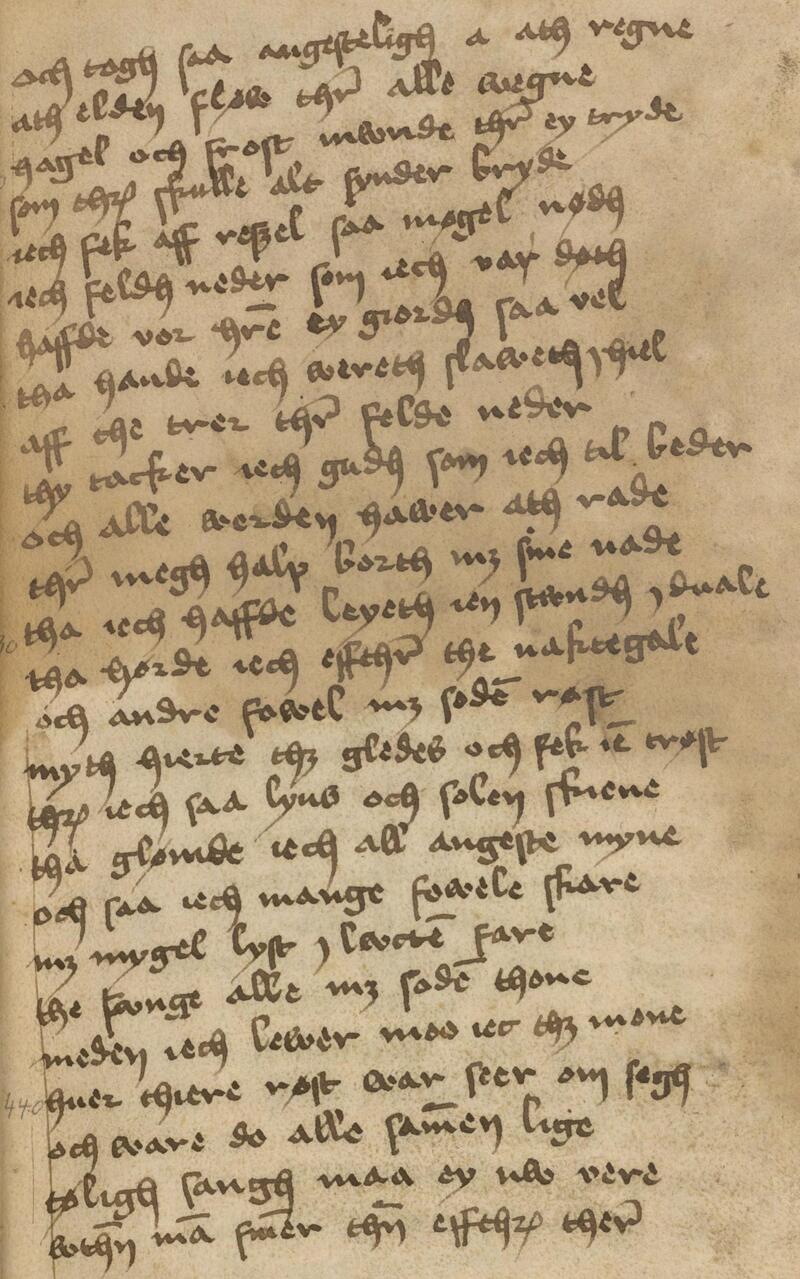 och togh saa angesteligh a ath regne
ath elden fløw thr̄ alle wegne
hagel och frost mwnde thr̄ ey tryde
som thrꝭ skulle alt synder bryde
iech fek aff retzel saa møgel nødh
iech feldh neder som iech var døth
haffde vor hrē ey giordh saa vel
tha hande iech wereth slaweth ihiel
aff the trer thr̄ felde neder
thy tacker iech gudh som iech til beder
och alle werden hawer ath rade
thr̄ megh halp borth mꝫ sine nade
30 tha iech haffde leyeth ien stwndh i duale
tha hørde iech effthr̄ the naktegale
och andre fowel mꝫ sødē røst
myth hierte thꝫ gledes och fek iē trøst
thrꝭ iech saa lyus och solen skiene
tha glømde iech all angeste myne
och saa iech mange fowele skare
mꝫ mygel lyst i lwctē fare
the swnge alle mꝫ sødē thone
meden iech lewer moo iec thꝫ mone
440 huer thiere røst war seer om segh
och ware do alle sam̄en lige
tøligh sangh maa ey nw vere
wthn̄ mā fin̄er thn̄ effthrꝭ ther̄